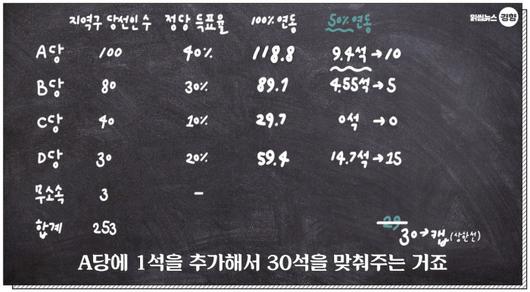 읽씹뉴스 경향
지역구 당선인 수 정당 득표율 100% 연동 50% 연동
A당 100 40% 118.8 9.4석→10
B당 80 30% 89.1 4.55석→5
C당 40 10% 29.7 0석→0
D당 30 20% 59.4 14.7석→15
무소속 3 -
합계 253 29
30→캡(상한선)
A당에 1석을 추가해서 30석을 맞춰주는 거죠